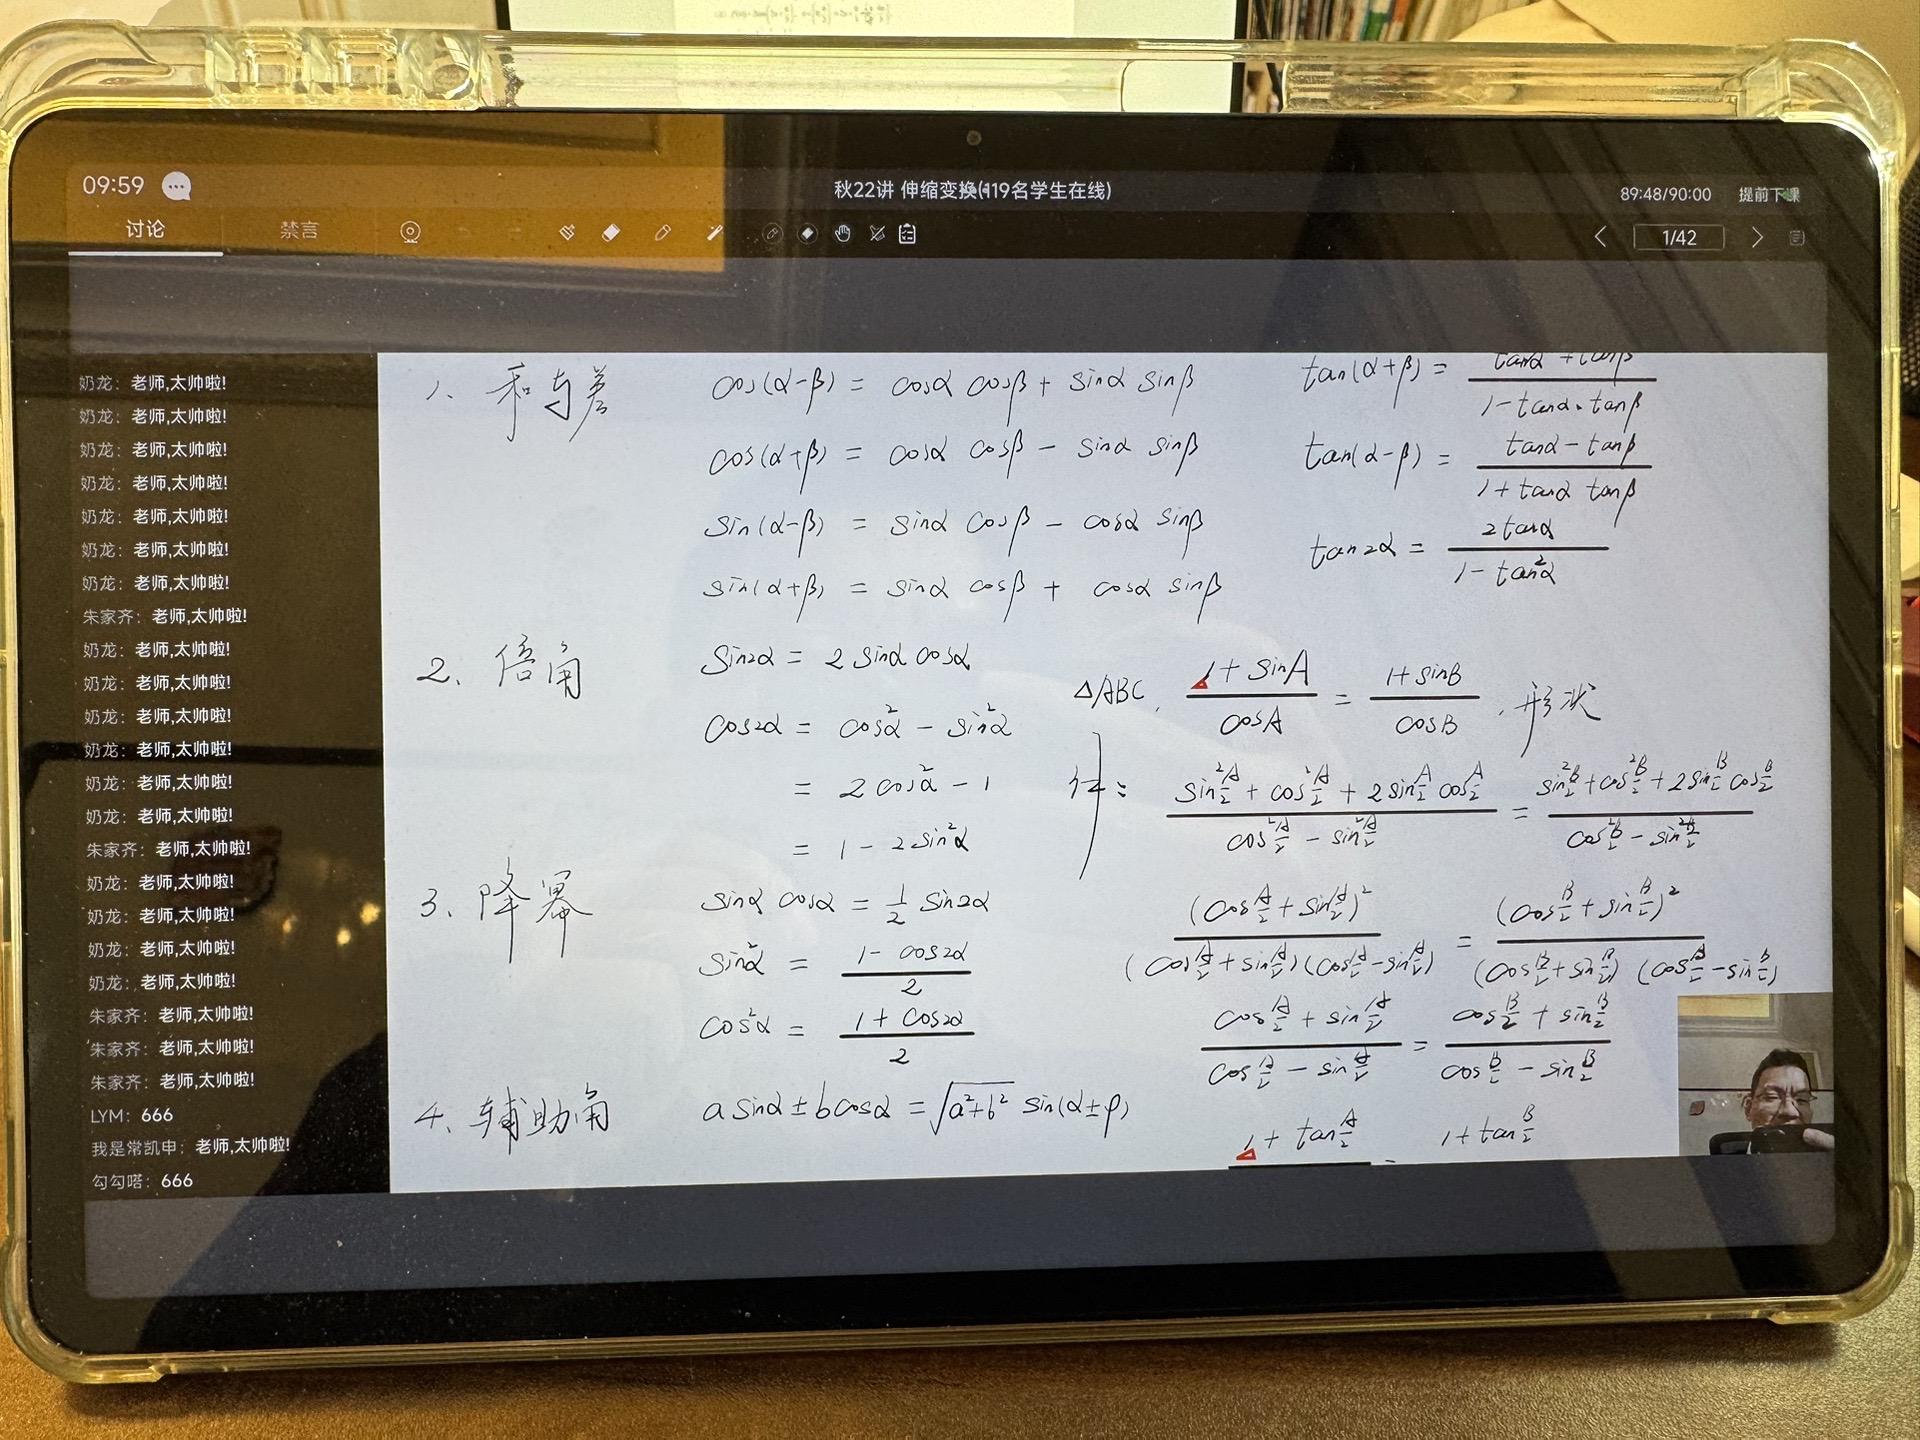 09:59
秋22讲 伸缩变换(119名学生在线)
89:48/90:00 提前下课
讨论 禁言
1/42
奶龙：老师,太帅啦!
奶龙：老师,太帅啦!
奶龙：老师,太帅啦!
奶龙：老师,太帅啦!
奶龙：老师,太帅啦!
奶龙：老师,太帅啦!
奶龙：老师,太帅啦!
朱家齐：老师,太帅啦!
奶龙：老师,太帅啦!
奶龙：老师,太帅啦!
奶龙：老师,太帅啦!
奶龙：老师,太帅啦!
奶龙：老师,太帅啦!
奶龙：老师,太帅啦!
朱家齐：老师,太帅啦!
奶龙：老师,太帅啦!
奶龙：老师,太帅啦!
奶龙：老师,太帅啦!
奶龙：老师,太帅啦!
朱家齐：老师,太帅啦!
朱家齐：老师,太帅啦!
朱家齐：老师,太帅啦!
LYM：666
我是常凯申：老师,太帅啦!
勾勾嗒：666
1、和与差
cos(α-β) = cosα cosβ + sinα sinβ
cos(α+β) = cosα cosβ - sinα sinβ
sin(α-β) = sinα cosβ - cosα sinβ
sin(α+β) = sinα cosβ + cosα sinβ
tan(α+β) = (tanα + tanβ)/(1-tanα·tanβ)
tan(α-β) = (tanα - tanβ)/(1+tanα tanβ)
tan2α = 2tanα/(1-tan²α)
2、倍角
sin2α = 2 sinα cosα
cos2α = cos²α - sin²α
= 2cos²α - 1
= 1 - 2sin²α
3、降幂
sinα cosα = 1/2 sin2α
sin²α = (1-cos2α)/2
cos²α = (1+cos2α)/2
4、辅助角
a sinα ± b cosα = √(a²+b²) sin(α±φ)
△ABC, (1+sinA)/cosA = (1+sinB)/cosB, 形状
(sin²A/2 + cos²A/2 + 2sinA/2 cosA/2)/(cos²A/2 - sin²A/2) = (sin²B/2 + cos²B/2 + 2sinB/2 cosB/2)/(cos²B/2 - sin²B/2)
(cosA/2 + sinA/2)²/((cosA/2 + sinA/2)(cosA/2 - sinA/2)) = (cosB/2 + sinB/2)²/((cosB/2 + sinB/2)(cosB/2 - sinB/2))
(cosA/2 + sinA/2)/(cosA/2 - sinA/2) = (cosB/2 + sinB/2)/(cosB/2 - sinB/2)
1 + tanA/2 = 1 + tanB/2